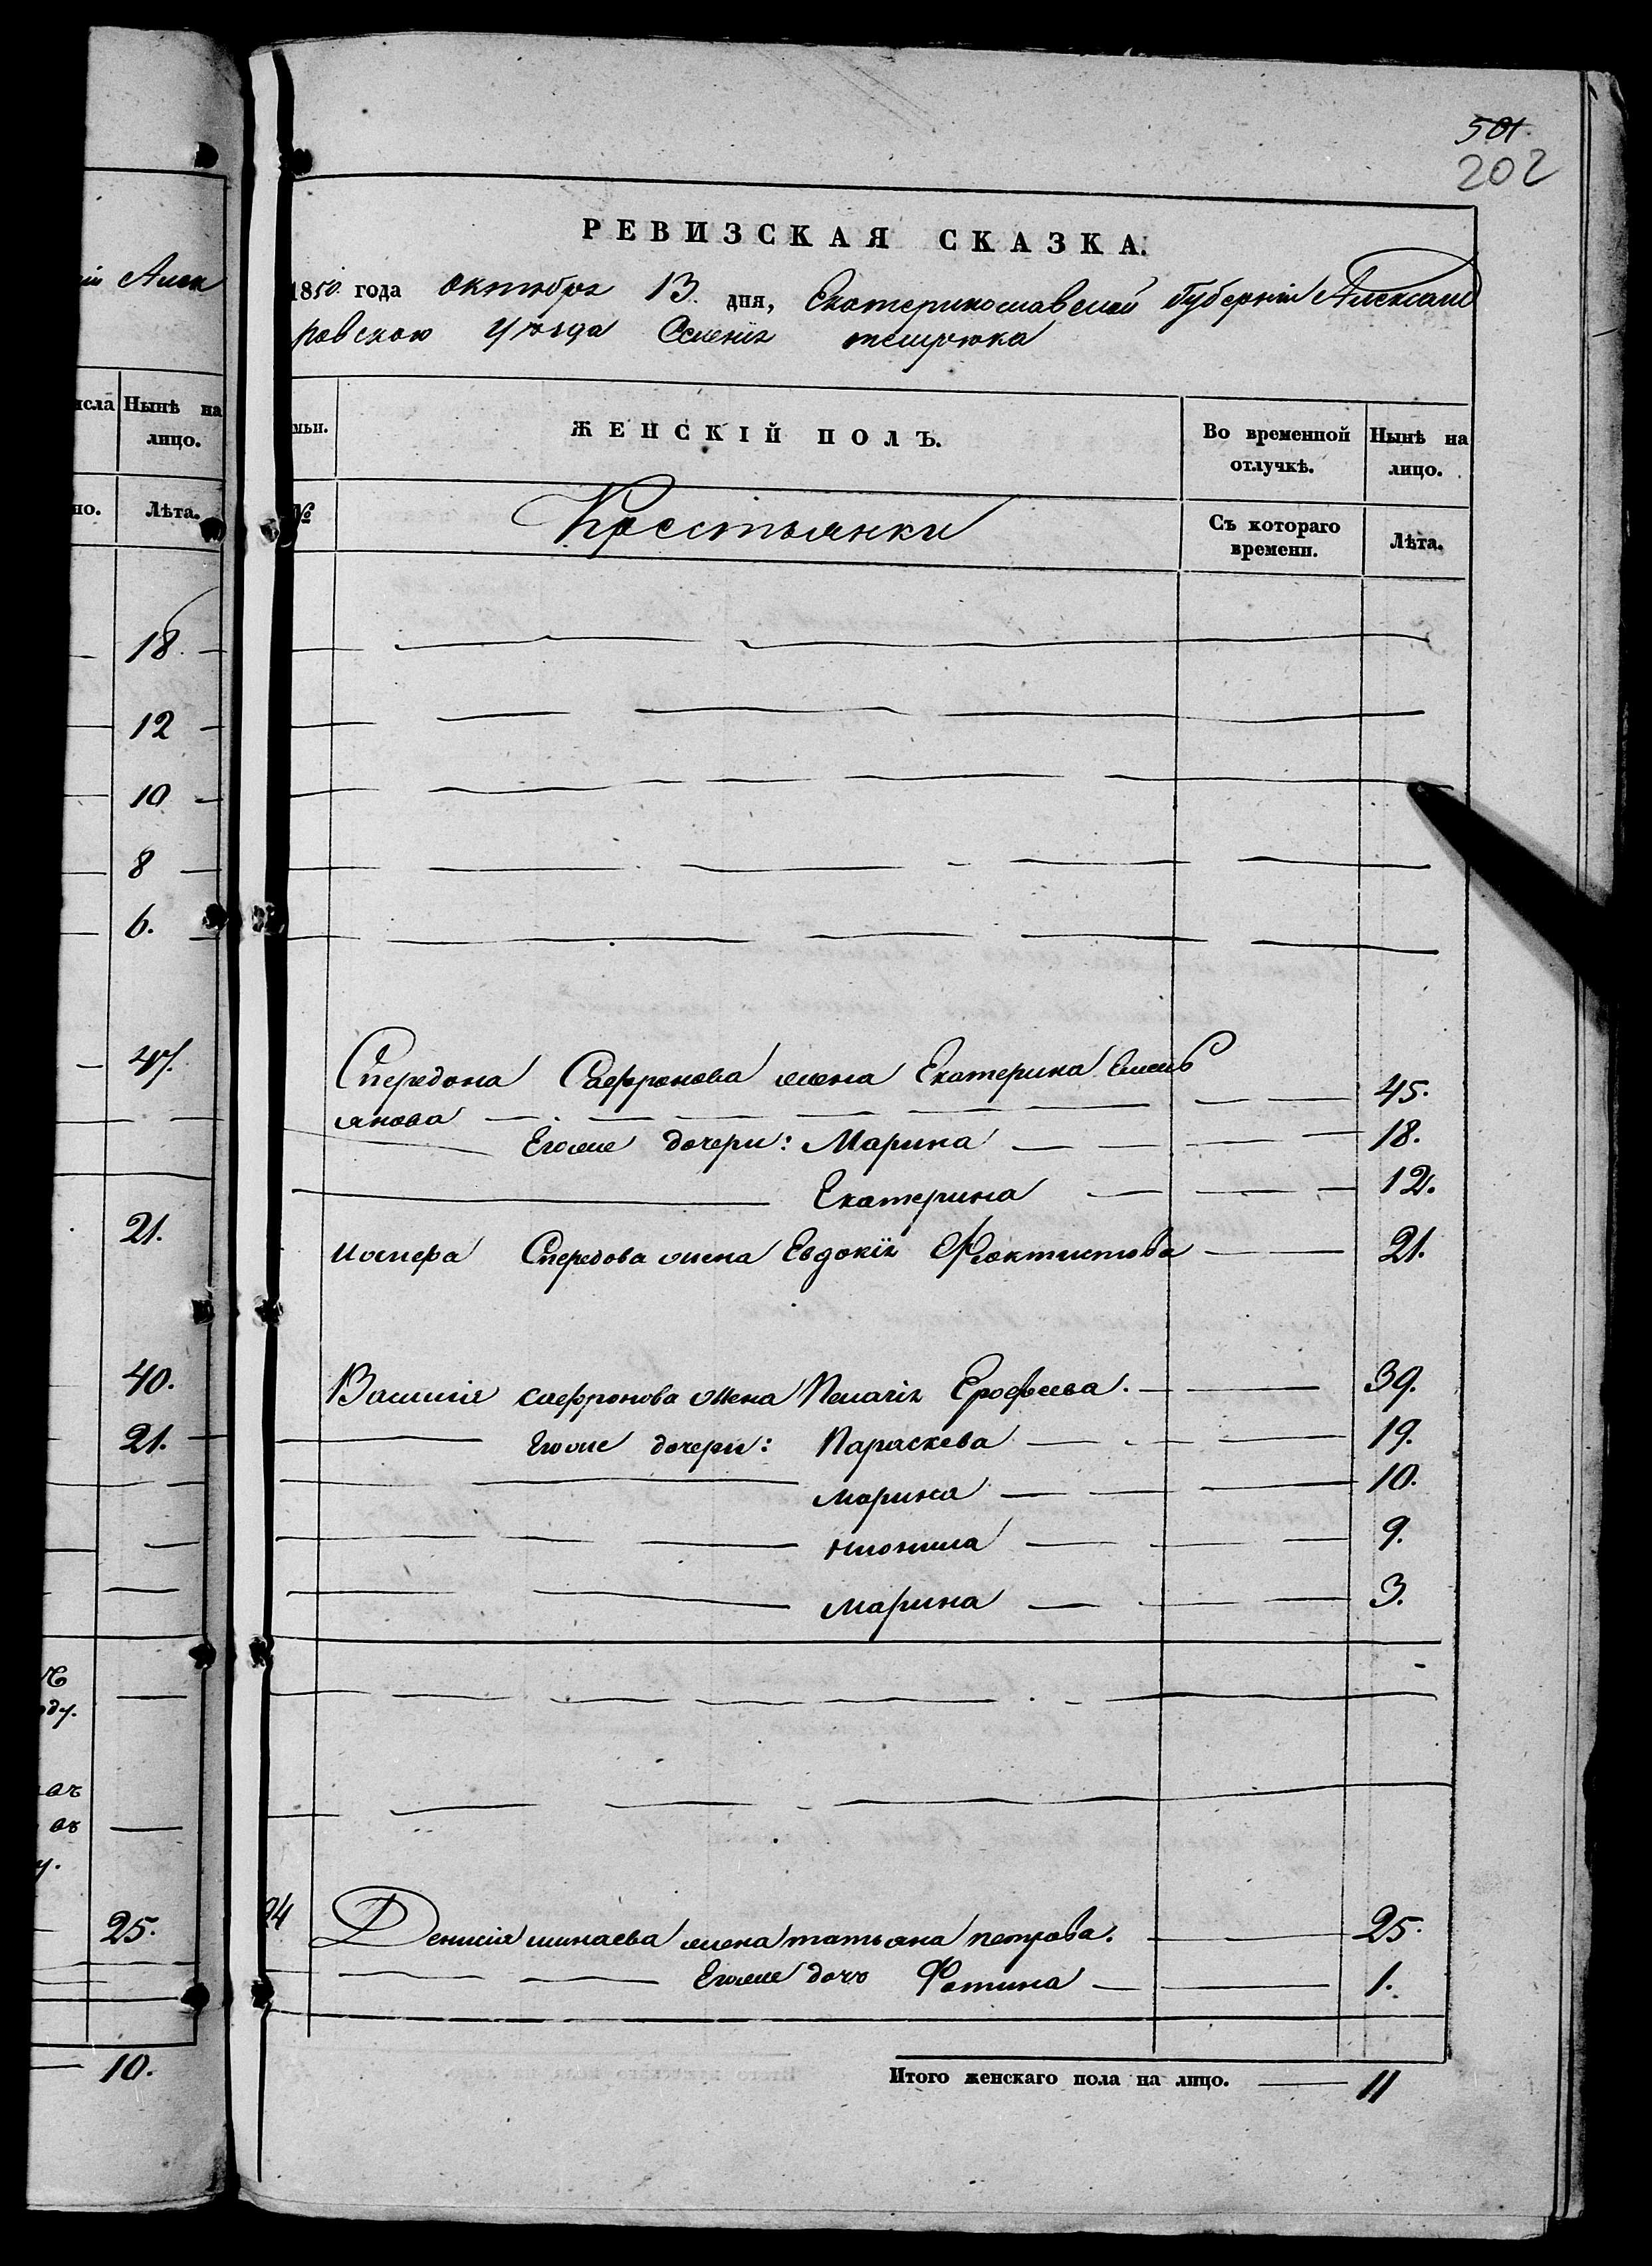 501.
202
РЕВИЗСКАЯ СКАЗКА.
1850. года октября 13. дня, Екатеринославской Губерніи Александ
ровского уѣзда Селенія темрюка
мьи.
ЖЕНСКІЙ ПОЛЪ.
Во временной отлучкѣ.
Нынѣ на лицо.
№
Крестьянки
Съ котораго времени.
Лѣта.
Спередона Сафронова жена Екатерина Емель
янова 45.
Егоже дочери: Марина 18.
Екатерина 12.
Иосифа Спередова жена Евдокія Фиоктистова 21.
Василія сафронова жена Пелагія Ерофѣева. 39.
Егоже дочери: Параскева 19.
Марина 10.
9.
Марина 3.
94 Денисія минаева жена татьяна петрова. 25.
Егоже дочь Фотина 1.
Итого женскаго пола на лицо. 11
Алек
Нынѣ на лицо.
но. Лѣта.
18.
12
10
8
6.
47.
21.
40.
21.
25.
10.